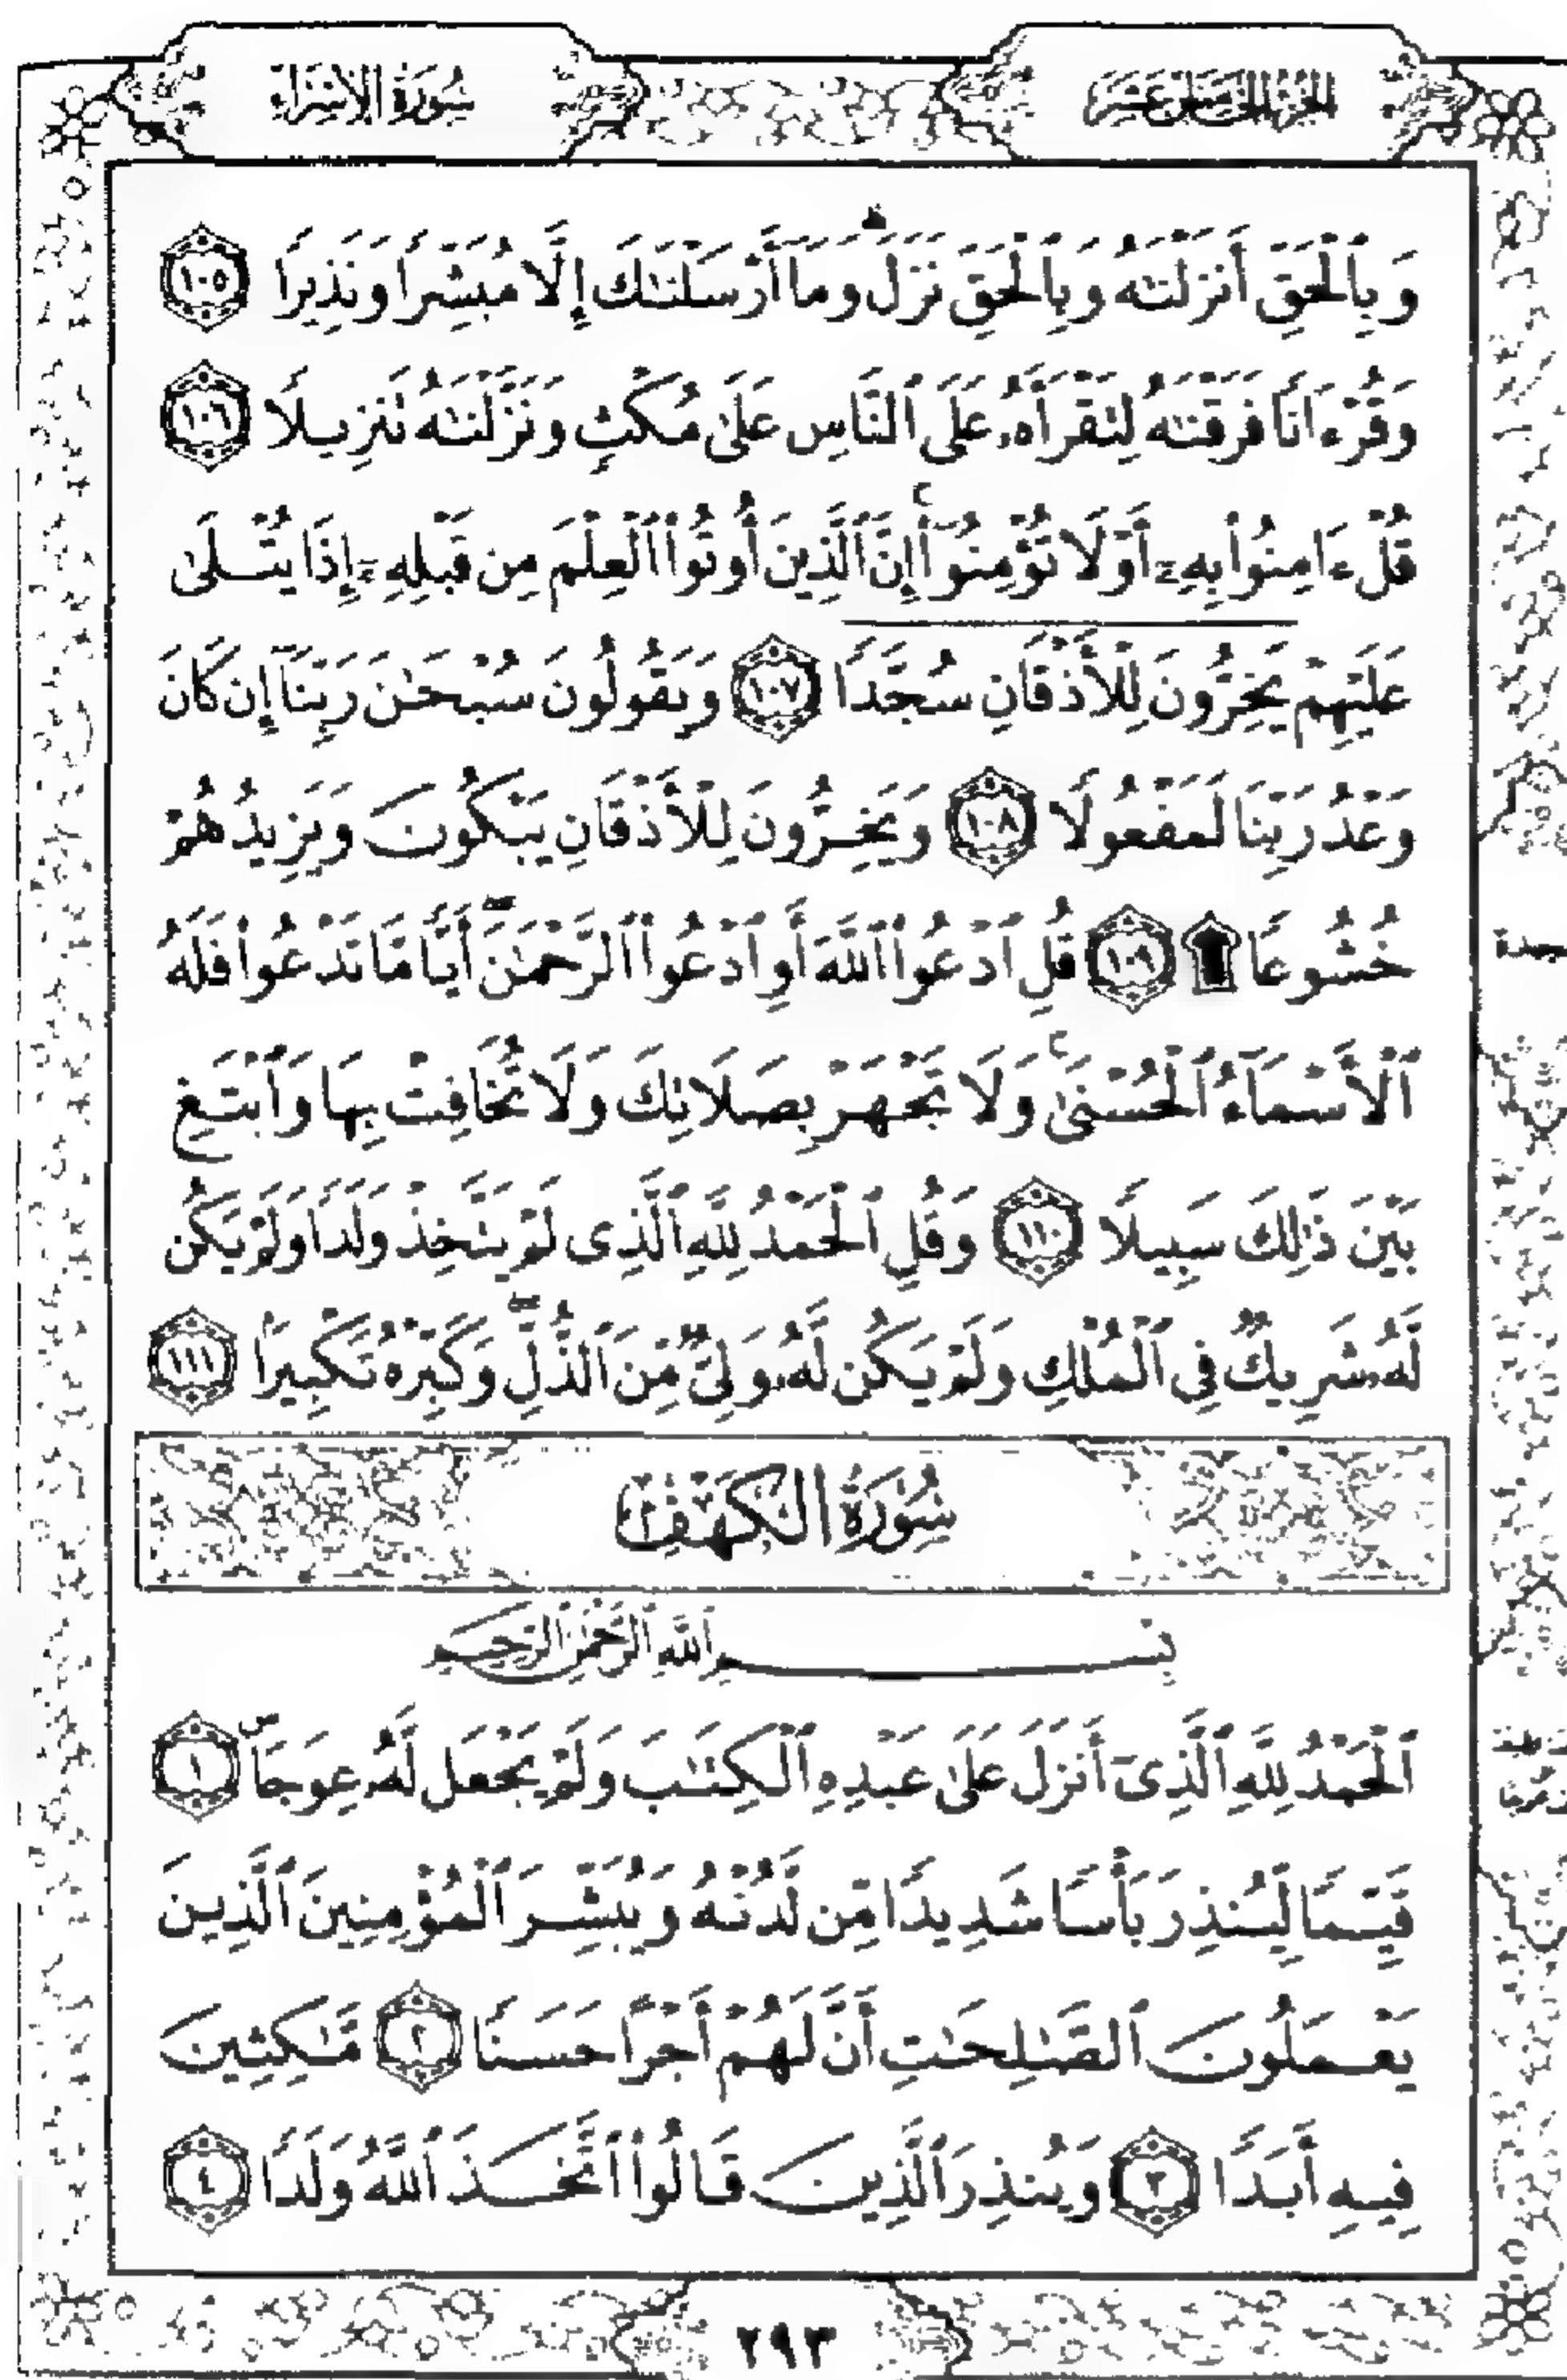 الجزء الخامس عشر
سورة الإسراء
وَبِٱلْحَقِّ أَنزَلْنَٰهُ وَبِٱلْحَقِّ نَزَلَ ۗ وَمَآ أَرْسَلْنَٰكَ إِلَّا مُبَشِّرًا وَنَذِيرًا ١٠٥
وَقُرْءَانًا فَرَقْنَٰهُ لِتَقْرَأَهُۥ عَلَى ٱلنَّاسِ عَلَىٰ مُكْثٍ وَنَزَّلْنَٰهُ تَنزِيلًا ١٠٦
قُلْ ءَامِنُوا۟ بِهِۦٓ أَوْ لَا تُؤْمِنُوٓا۟ ۚ إِنَّ ٱلَّذِينَ أُوتُوا۟ ٱلْعِلْمَ مِن قَبْلِهِۦٓ إِذَا يُتْلَىٰ
عَلَيْهِمْ يَخِرُّونَ لِلْأَذْقَانِ سُجَّدًا ١٠٧ وَيَقُولُونَ سُبْحَٰنَ رَبِّنَآ إِن كَانَ
وَعْدُ رَبِّنَا لَمَفْعُولًا ١٠٨ وَيَخِرُّونَ لِلْأَذْقَانِ يَبْكُونَ وَيَزِيدُهُمْ
خُشُوعًا ۩ ١٠٩ قُلِ ٱدْعُوا۟ ٱللَّهَ أَوِ ٱدْعُوا۟ ٱلرَّحْمَٰنَ ۖ أَيًّا مَّا تَدْعُوا۟ فَلَهُ
ٱلْأَسْمَآءُ ٱلْحُسْنَىٰ ۚ وَلَا تَجْهَرْ بِصَلَاتِكَ وَلَا تُخَافِتْ بِهَا وَٱبْتَغِ
بَيْنَ ذَٰلِكَ سَبِيلًا ١١٠ وَقُلِ ٱلْحَمْدُ لِلَّهِ ٱلَّذِى لَمْ يَتَّخِذْ وَلَدًا وَلَمْ يَكُن
لَّهُۥ شَرِيكٌ فِى ٱلْمُلْكِ وَلَمْ يَكُن لَّهُۥ وَلِىٌّ مِّنَ ٱلذُّلِّ ۖ وَكَبِّرْهُ تَكْبِيرًۢا ١١١
سُورَةُ الكَهْفِ
بِسْمِ ٱللَّهِ ٱلرَّحْمَٰنِ ٱلرَّحِيمِ
ٱلْحَمْدُ لِلَّهِ ٱلَّذِىٓ أَنزَلَ عَلَىٰ عَبْدِهِ ٱلْكِتَٰبَ وَلَمْ يَجْعَل لَّهُۥ عِوَجَاۜ ١
قَيِّمًا لِّيُنذِرَ بَأْسًا شَدِيدًا مِّن لَّدُنْهُ وَيُبَشِّرَ ٱلْمُؤْمِنِينَ ٱلَّذِينَ
يَعْمَلُونَ ٱلصَّٰلِحَٰتِ أَنَّ لَهُمْ أَجْرًا حَسَنًا ٢ مَّٰكِثِينَ
فِيهِ أَبَدًا ٣ وَيُنذِرَ ٱلَّذِينَ قَالُوا۟ ٱتَّخَذَ ٱللَّهُ وَلَدًا ٤
٢٩٣